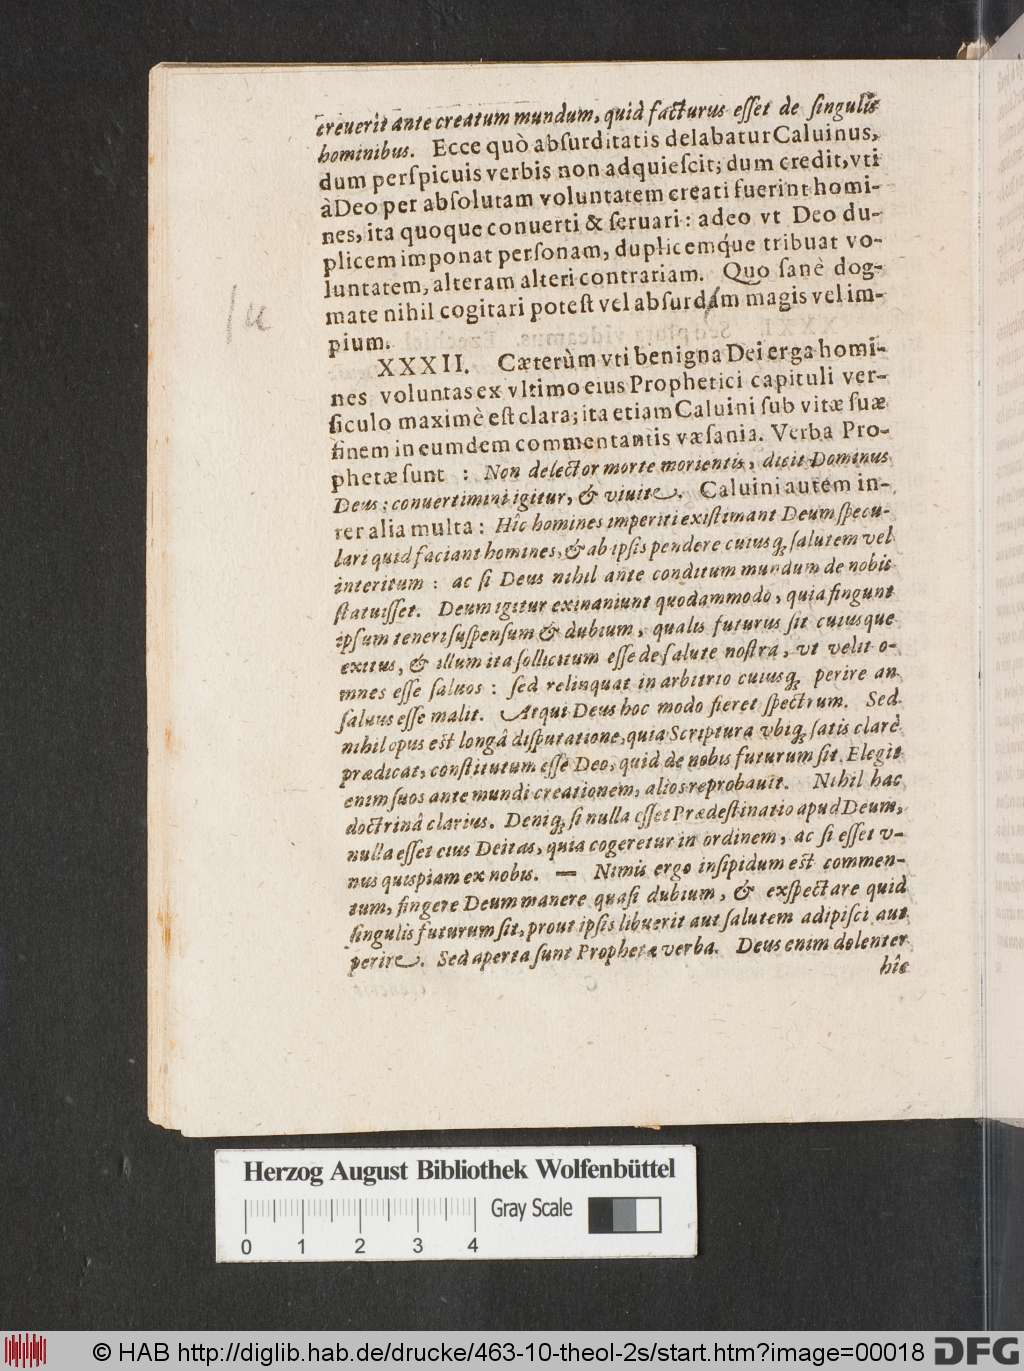 creuerit ante creatum mundum, quid facturus esset de singulis
hominibus. Ecce quò absurditatis delabatur Caluinus,
dum perspicuis verbis non adquiescit; dum credit, vti
à Deo per absolutam voluntatem creati fuerint homi-
nes, ita quoque conuerti & seruari: adeo vt Deo du-
plicem imponat personam, duplicemq́ue tribuat vo-
luntatem, alteram alteri contrariam. Quo sanè dog-
mate nihil cogitari potest vel absurdam magis vel im-
pium.
/u
XXXII. Cæterùm vti benigna Dei erga homi-
nes voluntas ex vltimo eius Prophetici capituli ver-
siculo maximè est clara; ita etiam Caluini sub vitæ suæ
finem in eumdem commentantis væsania. Verba Pro-
phetæ sunt : Non delector morte morientis, dicit Dominus
Deus: conuertimini igitur, & viuite. Caluini autem in-
ter alia multa: Hîc homines imperiti existimant Deum specu-
lari quid faciant homines, & ab ipsis pendere cuiusq; salutem vel
interitum : ac si Deus nihil ante conditum mundum de nobis
statuisset. Deum igitur exinaniunt quodammodo, quia fingunt
ipsum teneri suspensum & dubium, qualis futurus sit cuiusque
exitus, & illum ita sollicitum esse de salute nostra, vt velit o-
mnes esse saluos : sed relinquat in arbitrio cuiusq; perire an
saluus esse malit. Atqui Deus hoc modo fieret spectrum. Sed
nihil opus est longâ disputatione, quia Scriptura vbiq; satis clarè
prædicat, constitutum esse Deo, quid de nobis futurum sit. Elegit
enim suos ante mundi creationem, alios reprobauit. Nihil hac
doctrinâ clarius. Deniq; si nulla esset Prædestinatio apud Deum,
nulla esset eius Deitas, quia cogeretur in ordinem, ac si esset v-
nus quispiam ex nobis. — Nimis ergo insipidum est commen-
tum, fingere Deum manere quasi dubium, & exspectare quid
singulis futurum sit, prout ipsis libuerit aut salutem adipisci aut
perire. Sed aperta sunt Prophetæ verba. Deus enim dolenter
hîc
Herzog August Bibliothek Wolfenbüttel
Gray Scale
0 1 2 3 4
© HAB http://diglib.hab.de/drucke/463-10-theol-2s/start.htm?image=00018
DFG